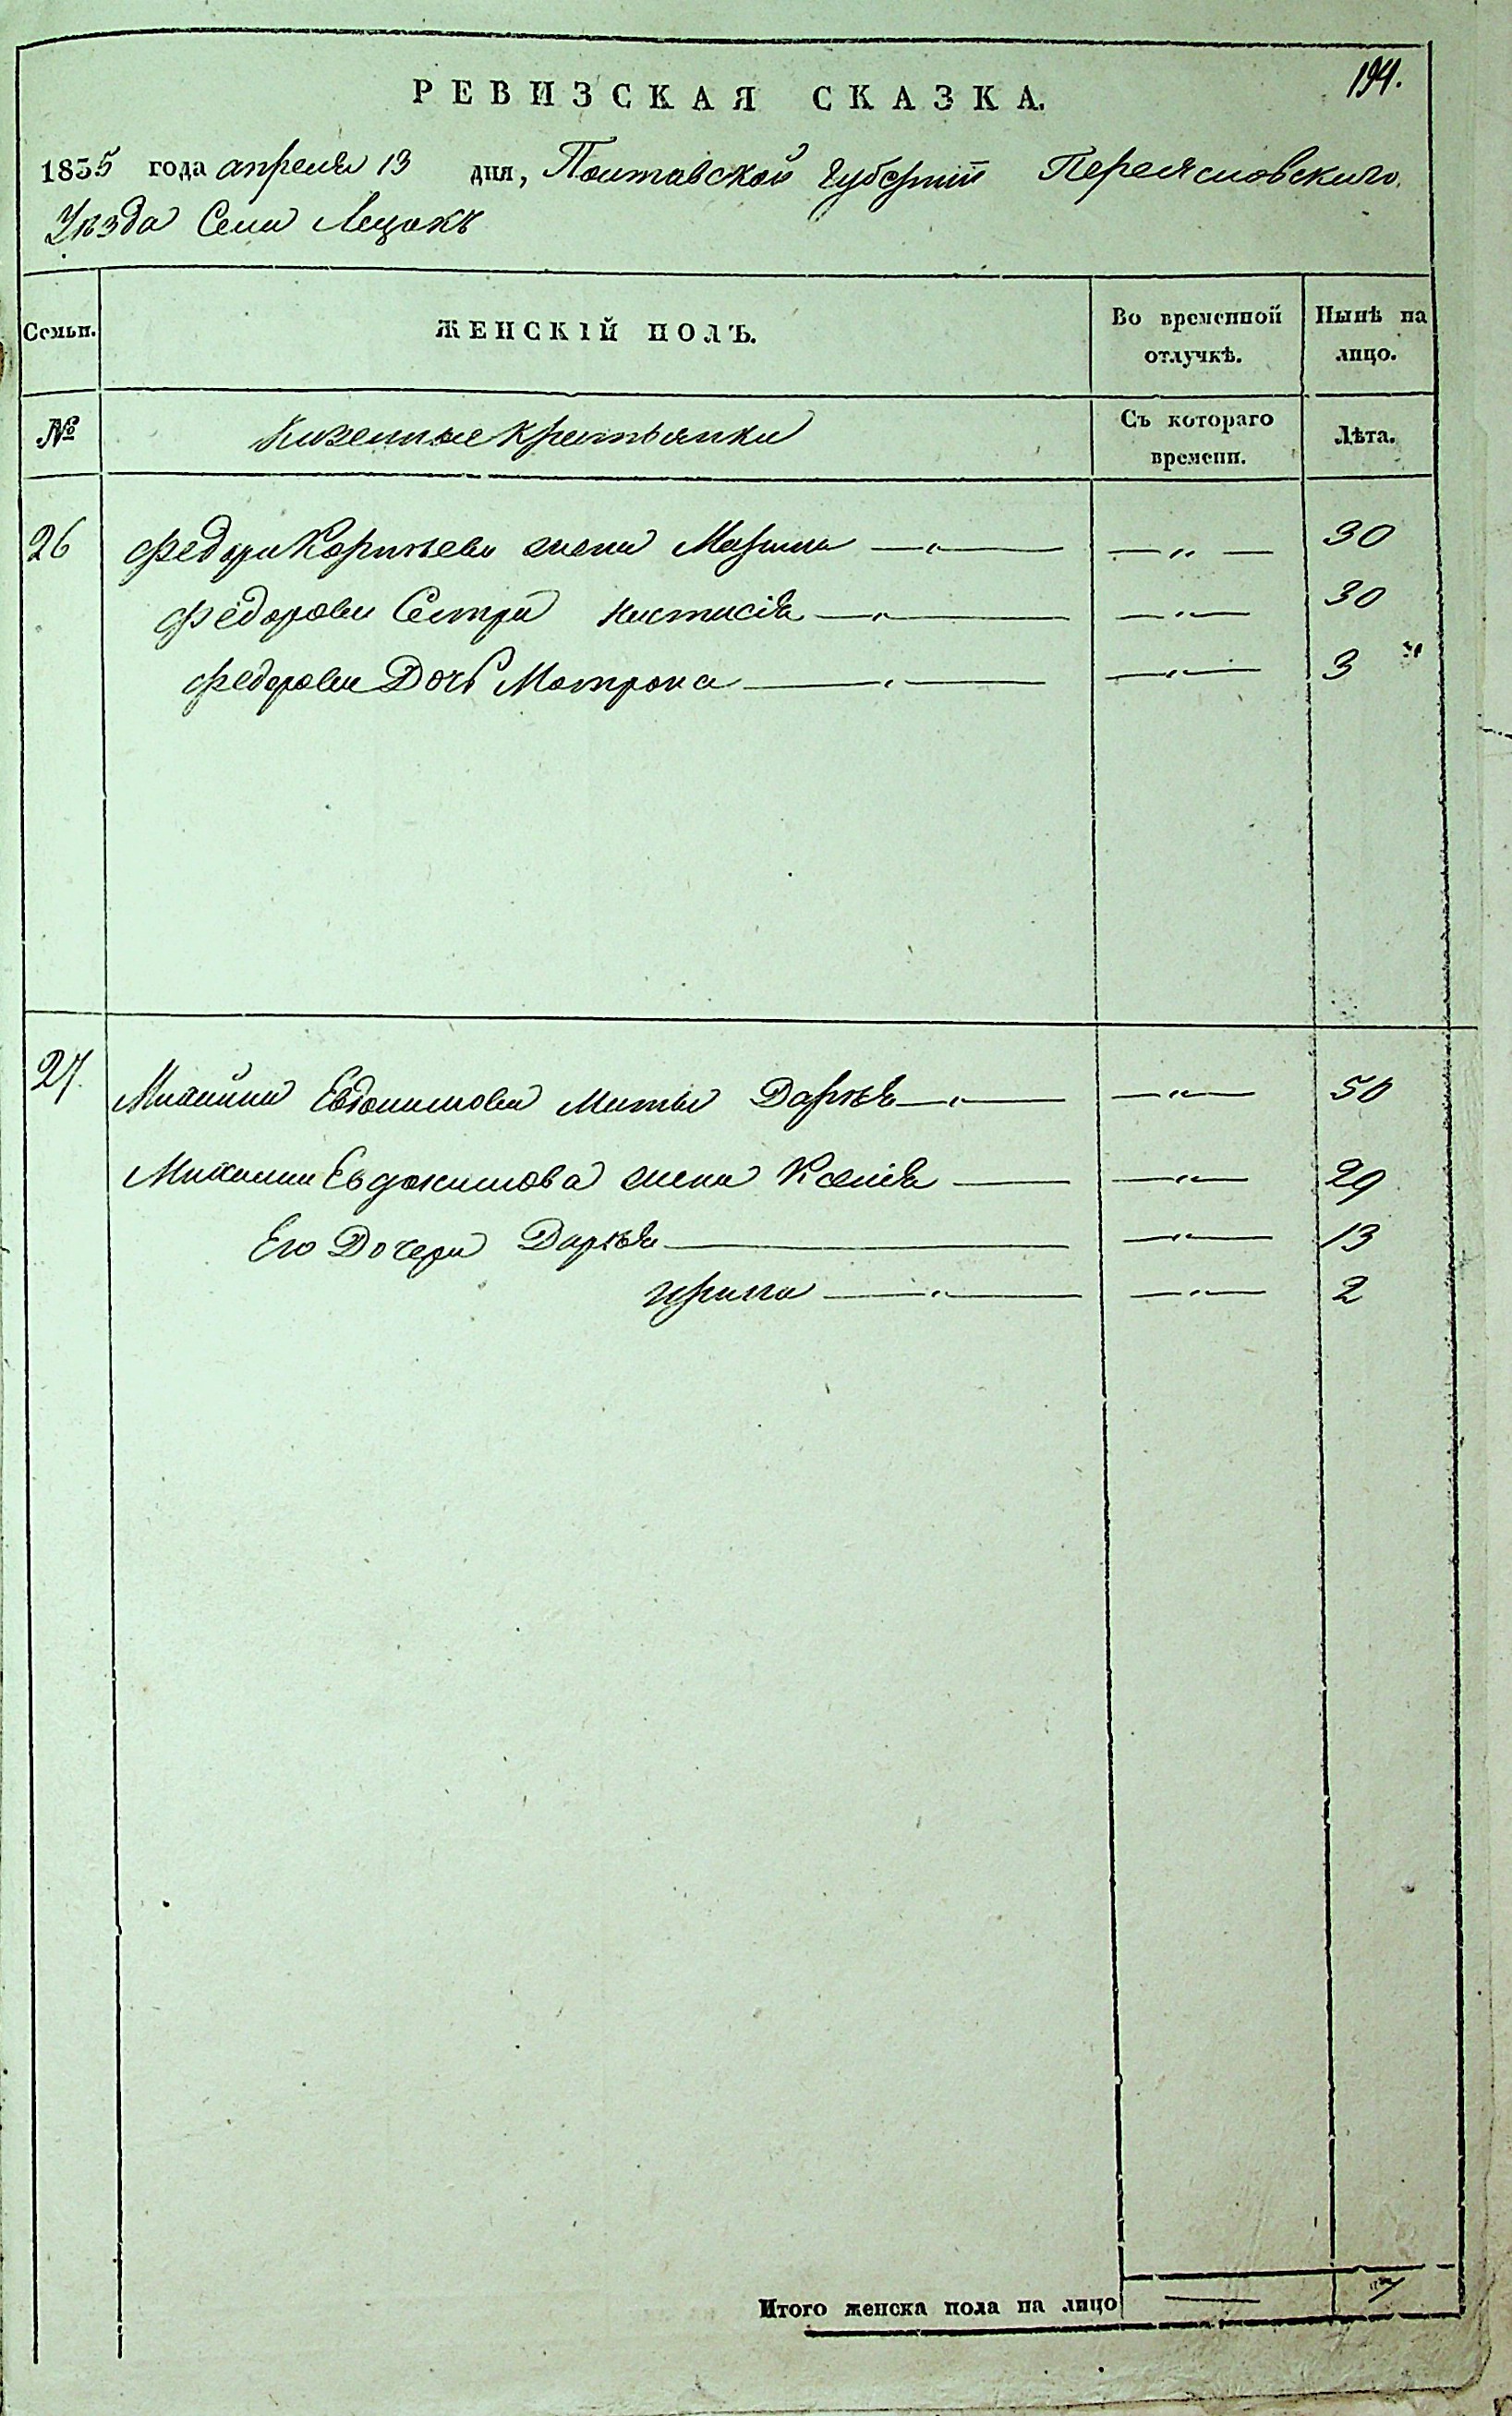 194.
РЕВИЗСКАЯ СКАЗКА.
1835 года апреля 13 дня, Полтавской Губернии Переясловского
Уезда Села Лецокъ
Семьи. ЖЕНСКІЙ ПОЛЪ. Во временной отлучкѣ. Нынѣ на лицо.
№ Казенные крестьянки Съ котораго времени. Лѣта.
26 Федора Корнѣева жена Марина — „ — — „ — 30
Федорова Сестра Настасія — „ — — „ — 30
Федорова Дочь Матрона — „ — — „ — 3
27. Михайла Евдокимова Мать Дарья — „ — — „ — 50
Михайла Евдокимова жена Ксенія — — „ — 29
Его Дочери Дарья — — „ — 13
Ирина — „ — — „ — 2
Итого женска пола на лицо — 7